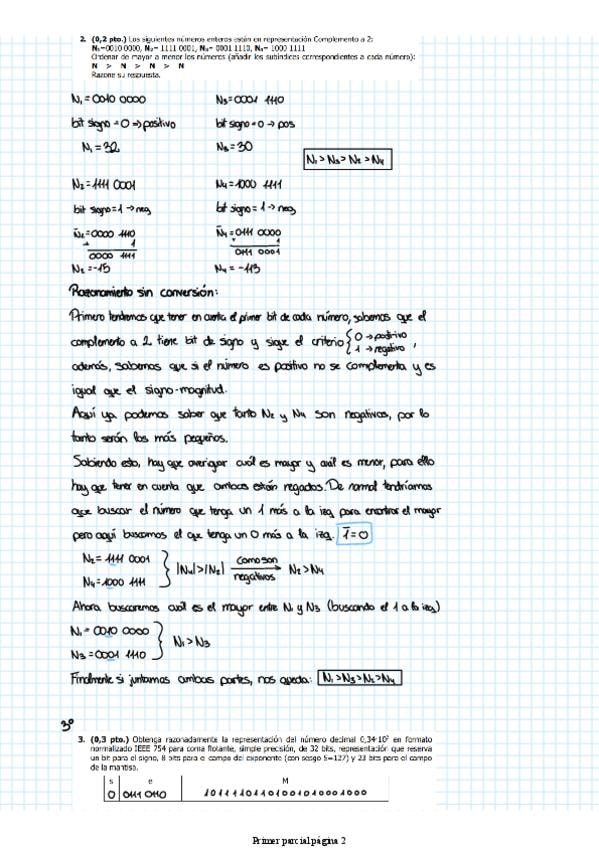 2. (0,2 pto.) Los siguientes números enteros están en representación Complemento a 2:
N₁=0010 0000, N₂= 1111 0001, N₃= 0001 1110, N₄= 1000 1111
Ordenar de mayor a menor los números (añadir los subíndices correspondientes a cada número):
N > N > N > N
Razone su respuesta.
N₁=0010 0000 N₃=0001 1110
bit signo=0 ⇒ positivo bit signo=0 → pos
N₁=32 N₃=30
N₁>N₃>N₂>N₄
N₂=1111 0001 N₄=1000 1111
bit signo=1 → neg bit signo=1 → neg
N̄₂=0000 1110 N̄₄=0111 0000
+ 1 + 1
0000 1111 0111 0001
N₂=-15 N₄=-113
Razonamiento sin conversión:
Primero tendremos que tener en cuenta el primer bit de cada número, sabemos que el
complemento a 2 tiene bit de signo y sigue el criterio { 0 → positivo
1 → negativo ,
además, sabemos que si el número es positivo no se complementa y es
igual que el signo-magnitud.
Aquí ya podemos saber que tanto N₂ y N₄ son negativos, por lo
tanto serán los más pequeños.
Sabiendo esto, hay que averiguar cuál es mayor y cuál es menor, para ello
hay que tener en cuenta que ambos están negados. De normal tendríamos
que buscar el número que tenga un 1 más a la izq para encontrar el mayor
pero aquí buscamos el que tenga un 0 más a la izq. 1̄=0
N₂=1111 0001
N₄=1000 1111 } |N₄|>|N₂| como son negativos → N₂>N₄
Ahora buscaremos cuál es el mayor entre N₁ y N₃ (buscando el 1 a la izq)
N₁=0010 0000
N₃=0001 1110 } N₁>N₃
Finalmente si juntamos ambas partes, nos queda: N₁>N₃>N₂>N₄
3º
3. (0,3 pto.) Obtenga razonadamente la representación del número decimal 0,34·10 en formato
normalizado IEEE 754 para coma flotante, simple precisión, de 32 bits, representación que reserva
un bit para el signo, 8 bits para el campo del exponente (con sesgo S=127) y 23 bits para el campo
de la mantisa.
s e M
0 0111 0110
Primer parcial página 2